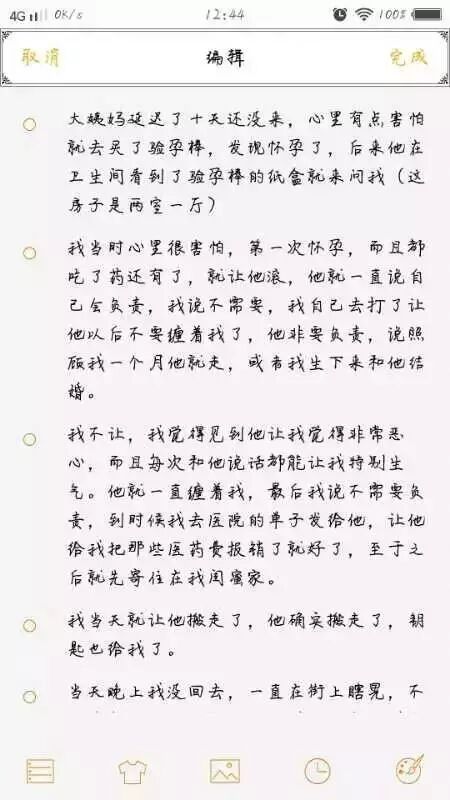 4G 0K/s 12:44 100%
取消 编辑 完成
大姨妈延迟了十天还没来，心里有点害怕
就去买了验孕棒，发现怀孕了，后来他在
卫生间看到了验孕棒的纸盒就来问我（这
房子是两室一厅）
我当时心里很害怕，第一次怀孕，而且都
吃了药还有了，就让他滚，他就一直说自
己会负责，我说不需要，我自己去打了让
他以后不要缠着我了，他非要负责，说照
顾我一个月他就走，或者我生下来和他结
婚。
我不让，我觉得见到他让我觉得非常恶
心，而且每次和他说话都能让我特别生
气。他就一直缠着我，最后我说不需要负
责，到时候我去医院的单子发给他，让他
给我把那些医药费报销了就好了，至于之
后就先寄住在我闺蜜家。
我当天就让他搬走了，他确实搬走了，钥
匙也给我了。
当天晚上我没回去，一直在街上瞎晃，不